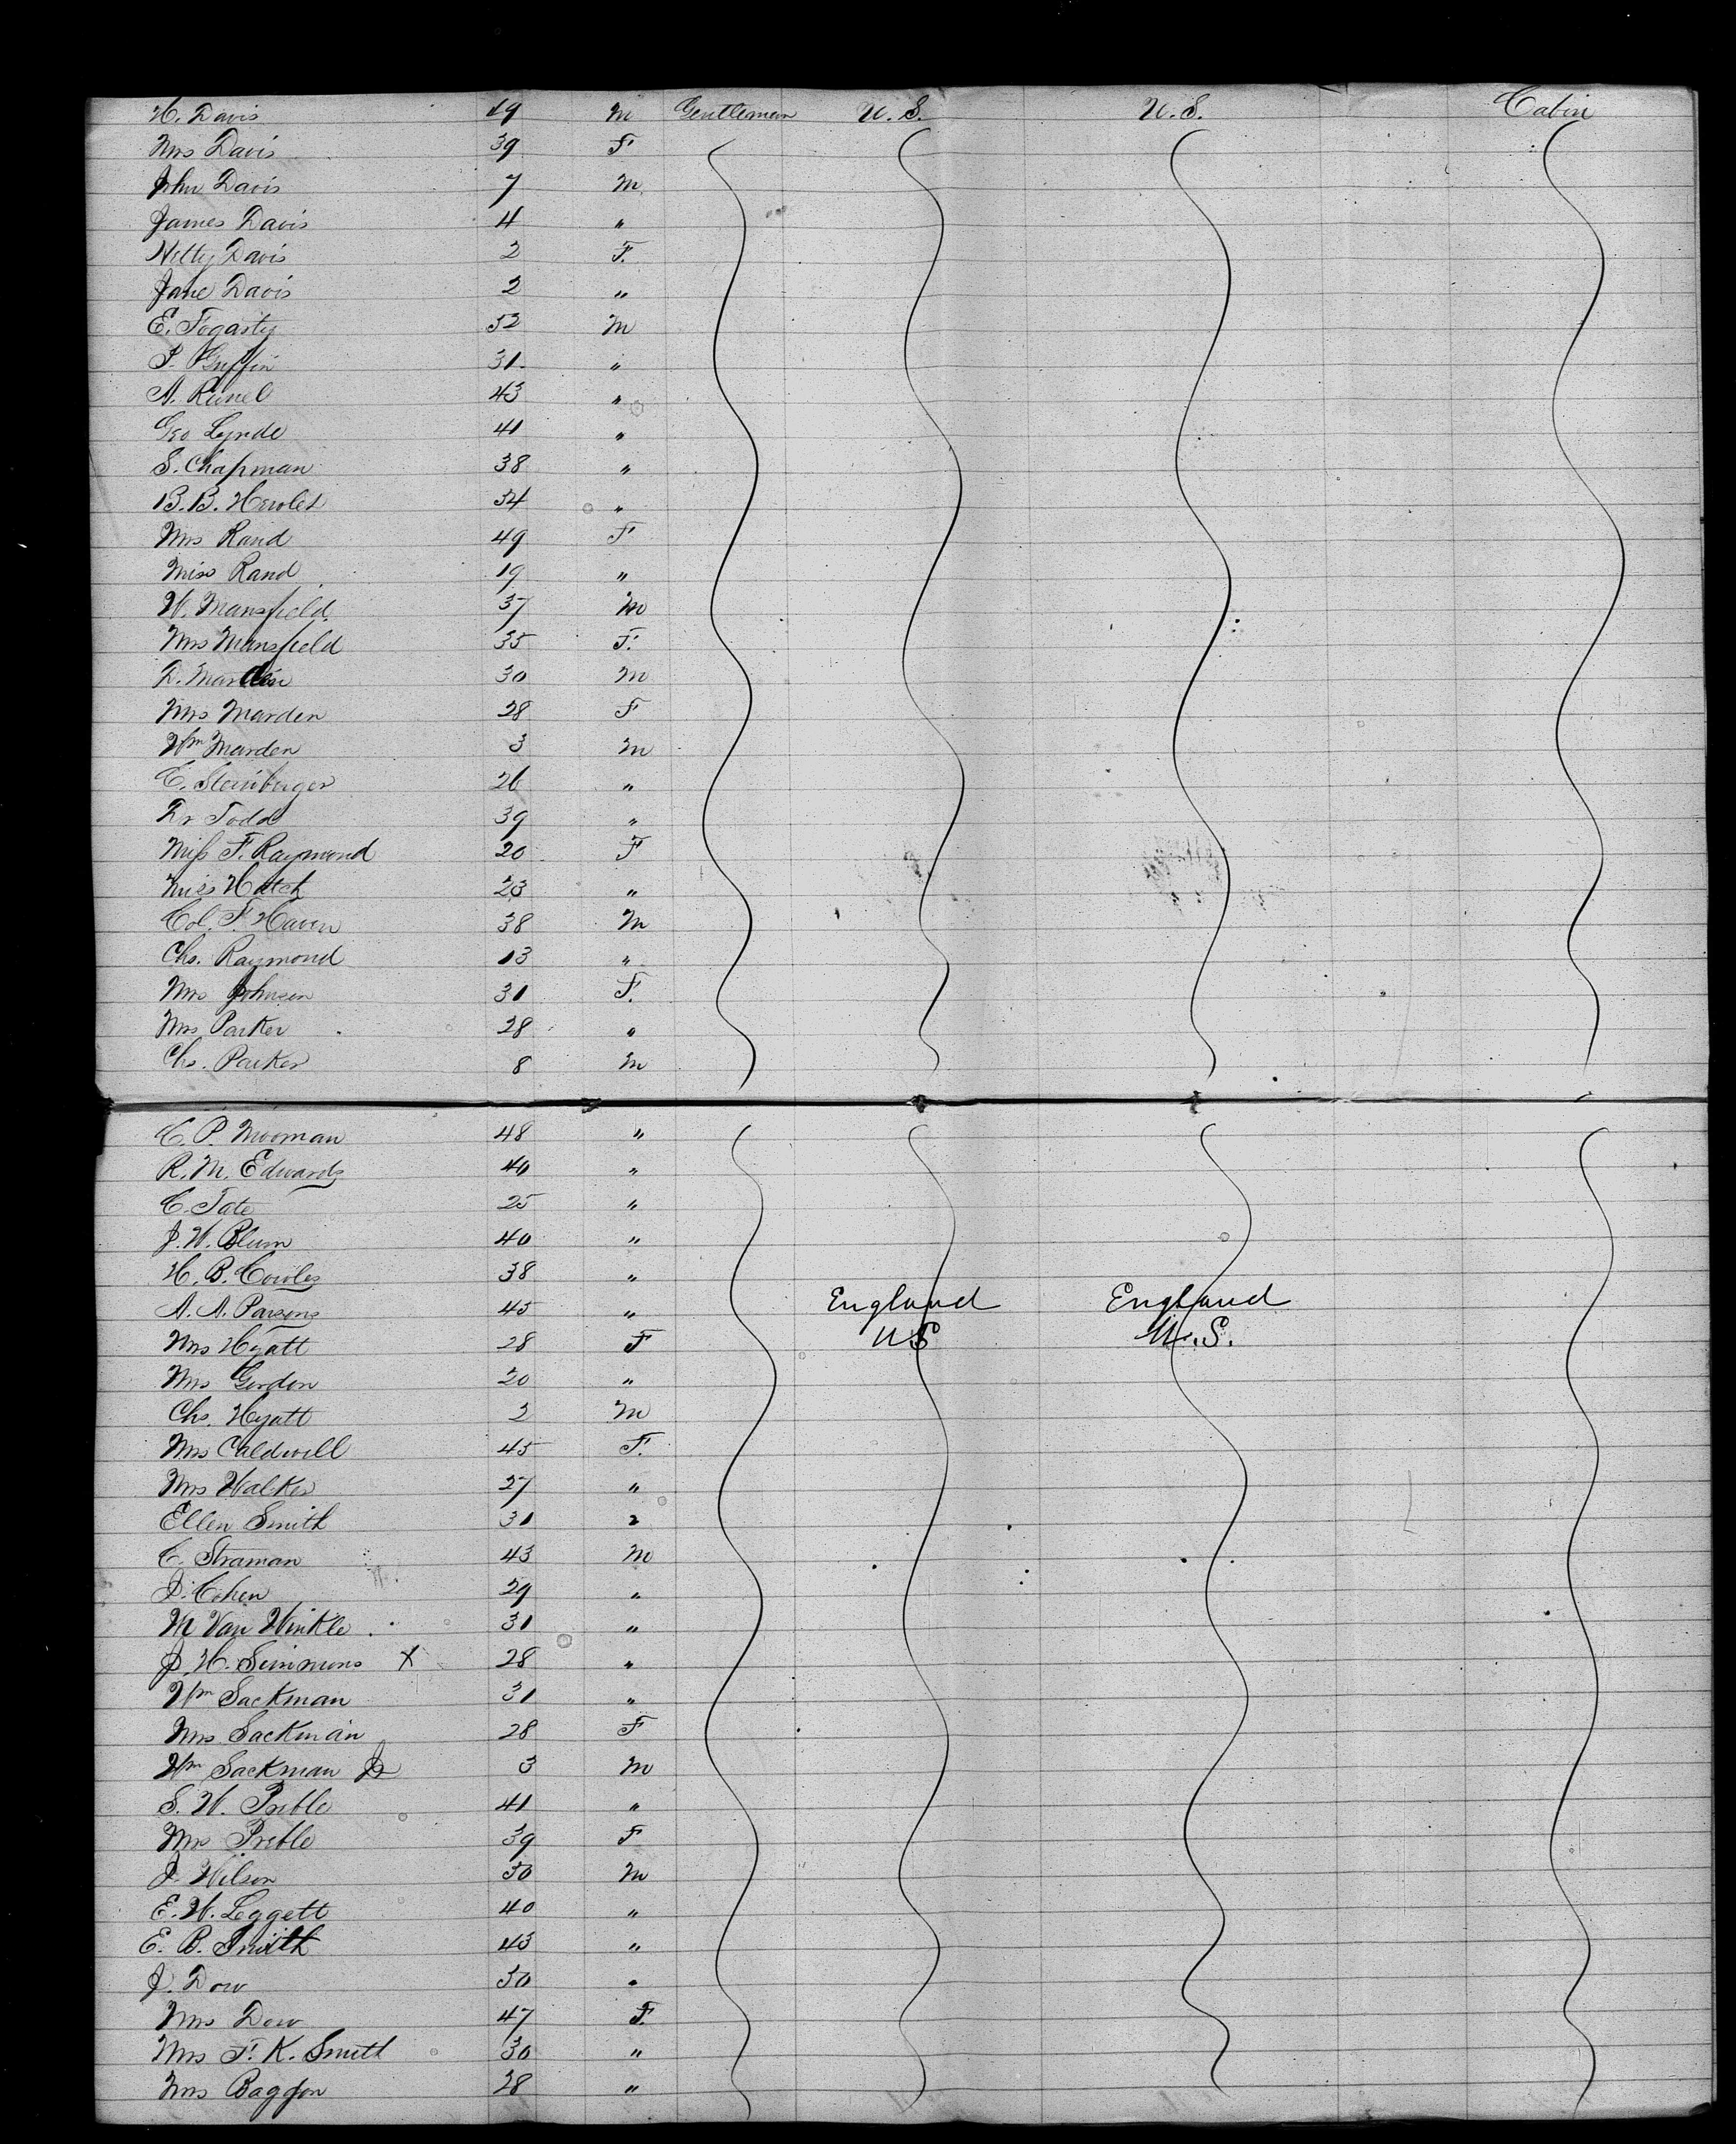 H. Davis 49 M Gentleman U.S. U.S. Cabin
Mrs Davis 39 F
John Davis 7 M
James Davis 4 "
Netty Davis 2 F.
Jane Davis 2 "
E. Fogarty 52 M
Griffin 31 "
A. 43 "
Geo Lynde 41 "
S. Chapman 38 "
B.B. Hewlet 54 "
Mrs Rand 49 F
Miss Rand 19 "
W. Mansfield 37 M
Mrs Mansfield 35 F.
D. Marden 30 M
Mrs Marden 28 F
Wm Marden 3 M
C. Steinberger 26 "
Dr Todd 39 "
Miss F. Raymond 20 F
Miss Hatch 23 "
Col. F. Haven 38 M
Chs. Raymond 13 "
Mrs Johnson 31 F.
Mrs Parker 28 "
Chs. Parker 8 M
C. P. Mooman 48 "
R. M. Edwards 40 "
C. Tate 25 "
J. W. Blum 40 "
H. B. Cowles 38 "
A. A. Parsons 45 " England England
Mrs Hyatt 28 F US U.S.
Mrs Gordon 20 "
Chs. Hyatt 2 M
Mrs Caldwell 45 F.
Mrs Walker 27 "
Ellen Smith 31 "
C. Straman 43 M
J. Cohen 29 "
M Van Winkle 31 "
J. H. Simmons X 28 "
Wm Sackman 31 "
Mrs Sackman 28 F
Wm Sackman Jr 3 M
S. W. Preble 41 "
Mrs Preble 39 F
J. Wilson 50 M
E. W. Leggett 40 "
E. B. Smith 43 "
J. Dow 50 "
Mrs Dow 47 F.
Mrs F. K. Smith 30 "
Mrs 28 "